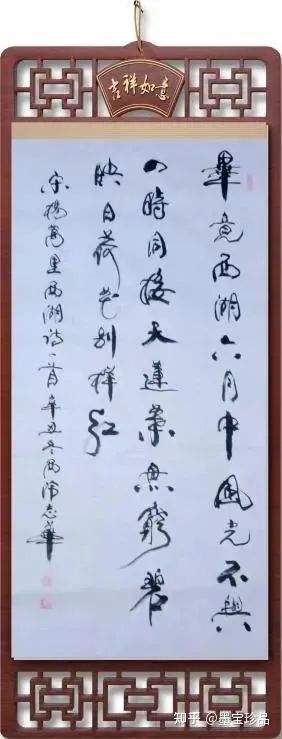 吉祥如意
畢竟西湖六月中風光不與
四時同接天蓮葉無窮碧
映日荷花別樣紅
宋楊萬里西湖詩一首辛丑冬志華
知乎 @墨宝珍品